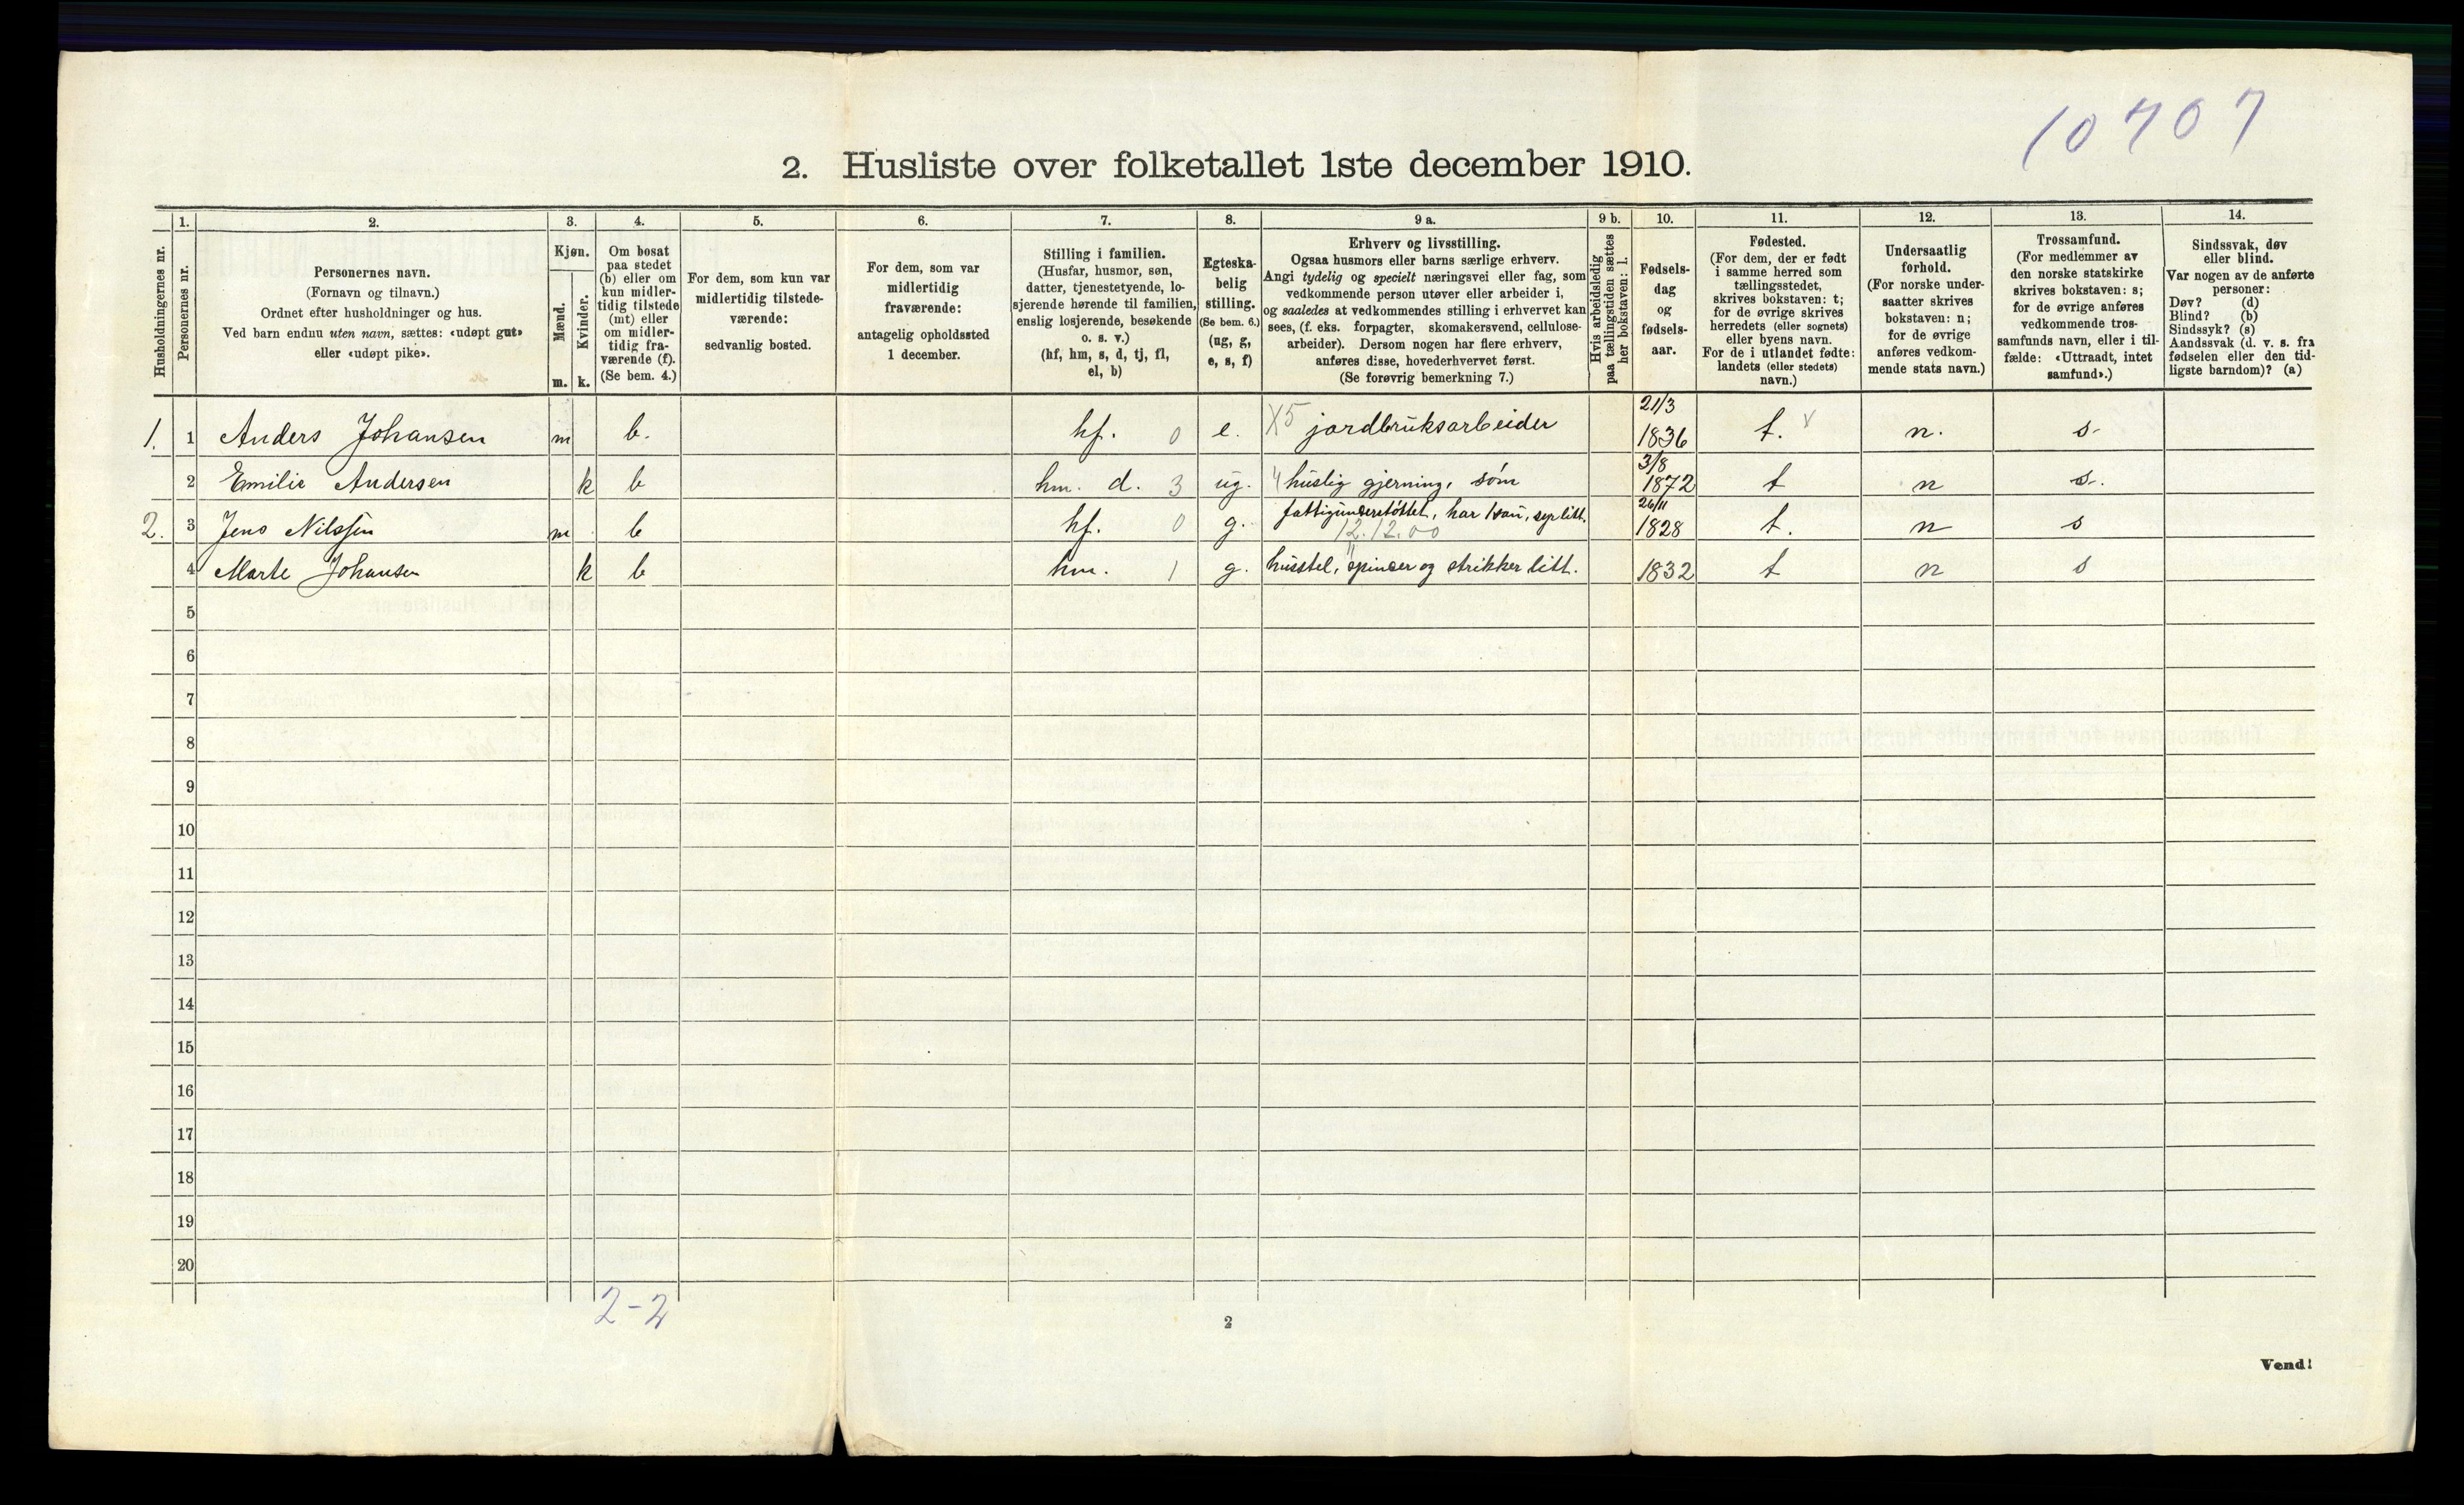 10707
2. Husliste over folketallet 1ste december 1910.
Husholdningernes nr.
1.
Personernes nr.
2.
Personernes navn.
(Fornavn og tilnavn.)
Ordnet efter husholdninger og hus.
Ved barn endnu uten navn, sættes: «udøpt gut»
eller «udøpt pike».
3.
Kjøn.
Mænd.
m.
Kvinder.
k.
4.
Om bosat
paa stedet
(b) eller om
kun midler-
tidig tilstede
(mt) eller
om midler-
tidig fra-
værende (f).
(Se bem. 4.)
5.
For dem, som kun var
midlertidig tilstede-
værende:
sedvanlig bosted.
6.
For dem, som var
midlertidig
fraværende:
antagelig opholdssted
1 december.
7.
Stilling i familien.
(Husfar, husmor, søn,
datter, tjenestetyende, lo-
sjerende hørende til familien,
enslig losjerende, besøkende
o. s. v.)
(hf, hm, s, d, tj, fl,
el, b)
8.
Egteska-
belig
stilling.
(Se bem. 6.)
(ug, g,
e, s, f)
9 a.
Erhverv og livsstilling.
Ogsaa husmors eller barns særlige erhverv.
Angi tydelig og specielt næringsvei eller fag, som
vedkommende person utøver eller arbeider i,
og saaledes at vedkommendes stilling i erhvervet kan
sees, (f. eks. forpagter, skomakersvend, cellulose-
arbeider). Dersom nogen har flere erhverv,
anføres disse, hovederhvervet først.
(Se forøvrig bemerkning 7.)
9 b.
Hvis arbeidsledig
paa tællingstiden sættes
her bokstaven: l.
10.
Fødsels-
dag
og
fødsels-
aar.
11.
Fødested.
(For dem, der er født
i samme herred som
tællingsstedet,
skrives bokstaven: t;
for de øvrige skrives
herredets (eller sognets)
eller byens navn.
For de i utlandet fødte:
landets (eller stedets)
navn.)
12.
Undersaatlig
forhold.
(For norske under-
saatter skrives
bokstaven: n;
for de øvrige
anføres vedkom-
mende stats navn.)
13.
Trossamfund.
(For medlemmer av
den norske statskirke
skrives bokstaven: s;
for de øvrige anføres
vedkommende tros-
samfunds navn, eller i til-
fælde: «Uttraadt, intet
samfund».)
14.
Sindssvak, døv
eller blind.
Var nogen av de anførte
personer:
Døv? (d)
Blind? (b)
Sindssyk? (s)
Aandssvak (d. v. s. fra
fødselen eller den tid-
ligste barndom)? (a)
1. 1 Anders Johansen m b. hf. 0 e. X5 jordbruksarbeider 21/3 1836 t. n. s.
2 Emilie Andersen k b hm. d. 3 ug. 4 huslig gjerning, søm 3/8 1872 t n s.
2. 3 Jens Nilssen m b hf. 0 g. fattigunderstøttet, har 1 sau, syr litt. 12.12.00 26/11 1828 t. n s
4 Marte Johansen k b hm. 1 g. husstel, spinder og strikker litt. 1832 t n s
5
6
7
8
9
10
11
12
13
14
15
16
17
18
19
20
2-2
2
Vend!